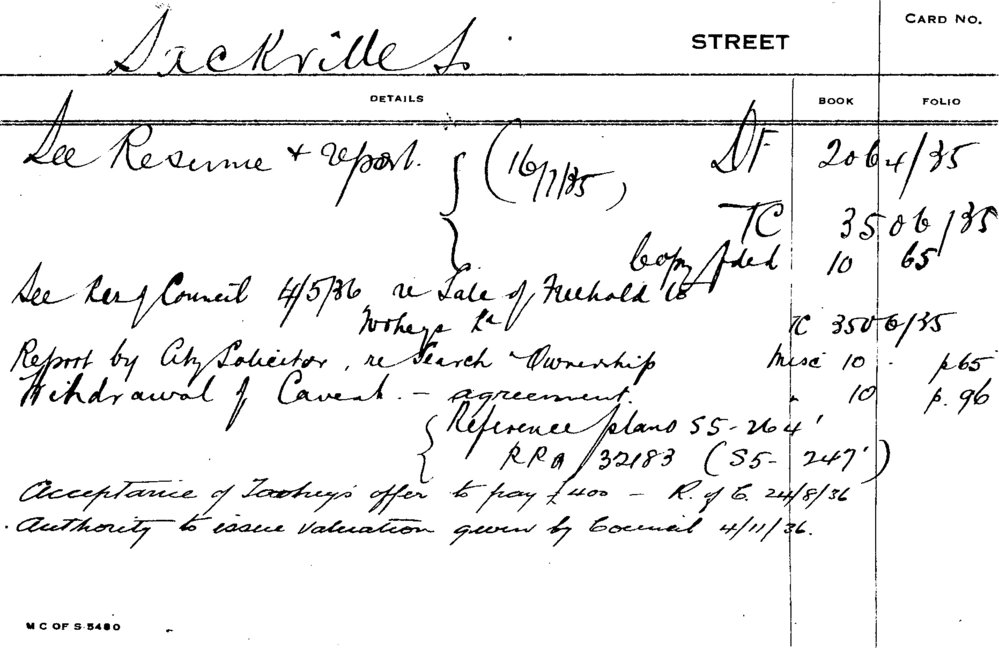 CARD NO.
Sackville St. STREET
DETAILS BOOK FOLIO
See Resume + report. (16/7/35) DF 2064/35
TC 3506/35
Copy filed 10 65
See Res of Council 4/5/36 re Sale of Freehold to
Tooheys Ld TC 3506/35
Report by City Solicitor, re Search - Ownership Misc 10 - p65
Withdrawal of Caveat. - agreement. " 10 p. 96
Reference plans S5-264'
RPA 32183 (S5-247')
Acceptance of Tooheys offer to pay £400 - R. of C. 24/8/36
Authority to issue valuation given by Council 4/11/36.
M C OF S 5480